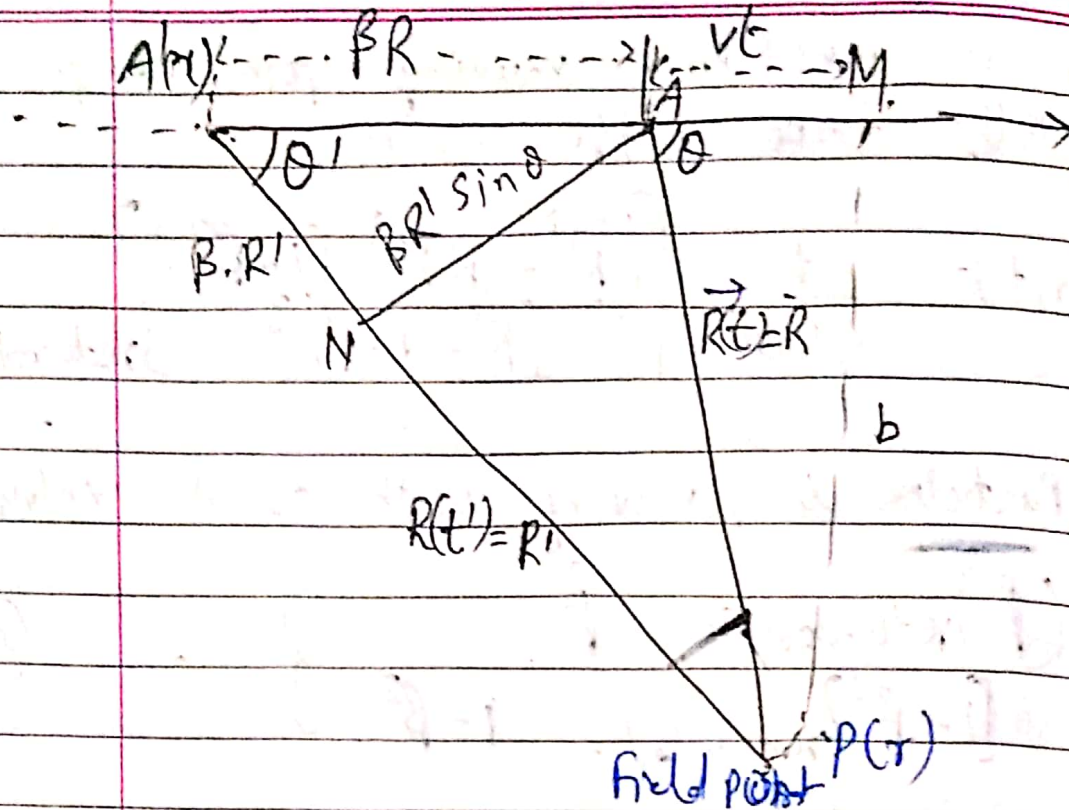 A(x) βR vt M.
A
θ' θ
βR' sinθ
β.R'
N
R(t)=R
b
R(t')=R'
field point P(r)